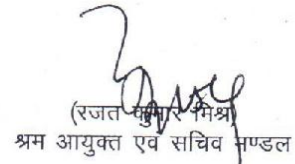 (रजत कुमार मिश्र)
श्रम आयुक्त एवं सचिव मण्डल